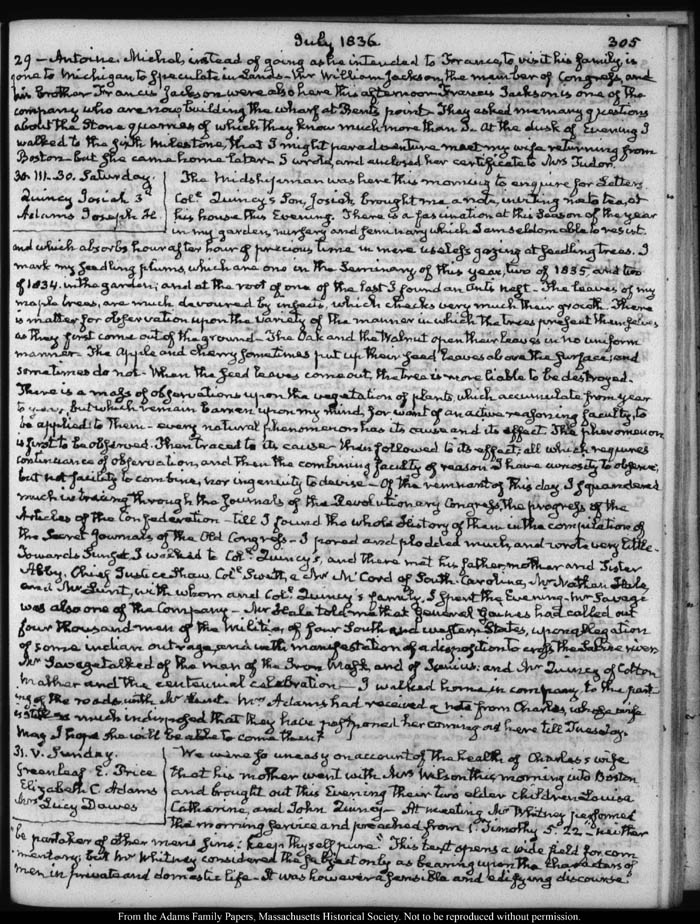 July 1836
305
29 — Antoine Michol, instead of going as he intended to France, to visit his family, is
gone to Michigan to speculate in Lands — Mr William Jackson, the member of Congress, and
his brother Francis Jackson were also here this afternoon. Francis Jackson is one of the
company who are now building the wharf at Bents point. They asked me many questions
about the Stone quarries of which they know much more than I. At the dusk of Evening I
walked to the sixth milestone, that I might peradventure meet my wife returning from
Boston — but she came home later. I wrote, and enclosed her certificate to Mrs Tudor.
30. III. 30. Saturday.
Quincy Josiah 3d
Adams Joseph H.
The Midshipman was here this morning to enquire for Letters
Colo. Quincy's Son, Josiah, brought me a note, inviting me to tea, at
his house this Evening. There is a fascination at this Season of the year
in my garden, nursery and seminary which I am seldom able to resist
and which absorbs hour after hour of precious time in mere useless gazing at seedling trees. I
mark my seedling plums, which are one in the Seminary of this year, two of 1835, and two
of 1834. in the garden; and at the root of one of the last I found an Ants nest — The leaves of my
maple trees, are much devoured by insects, which checks very much their growth. There
is matter for observation upon the variety of the manner in which the trees present themselves
as they first come out of the ground — The Oak and the Walnut open their leaves in no uniform
manner — The Apple and cherry sometimes put up their seed leaves above the surface, and
sometimes do not — When the seed leaves come out, the tree is more liable to be destroyed.
There is a mass of observations upon the vegetation of plants, which accumulate from year
to year, but which remain barren upon my mind, for want of an active reasoning faculty, to
be applied to them — every natural phenomenon has its cause and its effect. The phenomenon
is first to be observed. Then traced to its cause — then followed to its effect; all which requires
continuance of observation, and then the combining faculty of reason. I have curiosity to observe;
but not facility to combine, nor ingenuity to devise — Of the remnant of this day I squandered
much in tracing through the Journals of the Revolutionary Congress, the progress of the
Articles of the Confederation — till I found the whole History of them in the compilation of
the Secret Journals of the Old Congress — I pored and plodded much, and wrote very little.
Towards Sunset I walked to Colo. Quincy's, and there met his father, mother and Sister
Abby, Chief Justice Shaw, Colo. Swett, a Mr McCord of South Carolina, Mr Nathan Hale,
and Mr Lunt, with whom and Colo. Quincy's family, I spent the Evening. Mr Savage
was also one of the Company — Mr Hale told me that General Gaines had called out
four thousand men of the Militia, of four South and western States, upon allegation
of some indian outrage, and with manifestation of a disposition to cross the Sabine river.
Mr Savage talked of the man of the Iron Mask, and of Junius: and Mr Quincy of Cotton
Mather and the centennial celebration — I walked home in company to the part-
ing of the roads with Mr Lunt. Mrs Adams had received a note from Charles, whose wife
is still so much indisposed that they have postponed her coming out here till Tuesday.
May I hope she will be able to come then?
31. V. Sunday.
Greenleaf E. Price
Elizabeth C. Adams
Mrs Lucy Dawes
We were so uneasy on account of the health of Charles's wife
that his mother went with Mrs Welson this morning into Boston
and brought out this Evening their two elder children Louisa
Catherine, and John Quincy — At meeting Mr Whitney performed
the morning service and preached from 1. Timothy 5. 22 "neither
be partaker of other men's sins: keep thyself pure." This text opens a wide field for com-
mentary, but Mr Whitney considered the subject only as bearing upon the characters of
men in private and domestic life — It was however a sensible and edifying discourse.
From the Adams Family Papers, Massachusetts Historical Society. Not to be reproduced without permission.